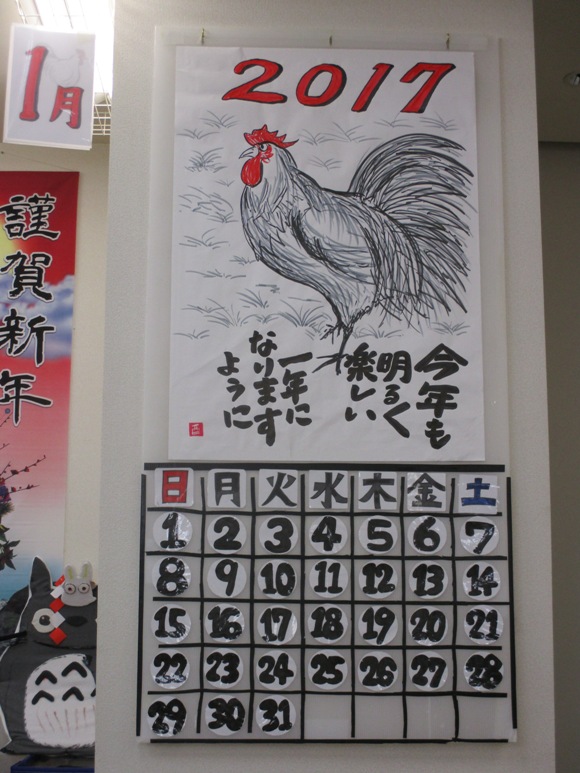 1月
謹賀新年
2017
今年も
明るく
楽しい
一年に
なります
ように
日 月 火 水 木 金 土
1 2 3 4 5 6 7
8 9 10 11 12 13 14
15 16 17 18 19 20 21
22 23 24 25 26 27 28
29 30 31